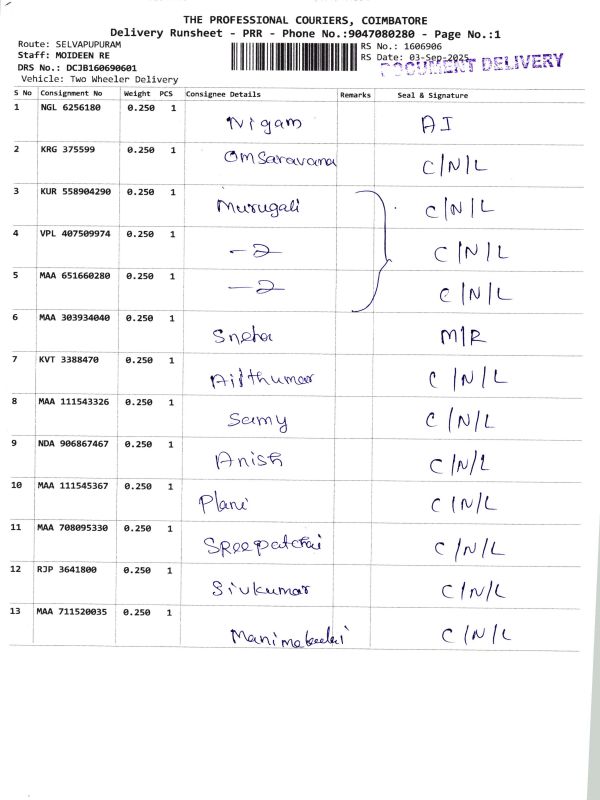 THE PROFESSIONAL COURIERS, COIMBATORE
Delivery Runsheet - PRR - Phone No.:9047080280 - Page No.:1
Route: SELVAPUPURAM
Staff: MOIDEEN RE
DRS No.: DCJB160690601
Vehicle: Two Wheeler Delivery
RS No.: 1606906
RS Date: 03-Sep-2025
DOCUMENT DELIVERY
S No Consignment No Weight PCS Consignee Details Remarks Seal & Signature
1 NGL 6256180 0.250 1 Nigam AI
2 KRG 375599 0.250 1 Omsaravana C/N/L
3 KUR 558904290 0.250 1 Murugali C/N/L
4 VPL 407509974 0.250 1 —2— C/N/L
5 MAA 651660280 0.250 1 —2— C/N/L
6 MAA 303934040 0.250 1 Sneha M/R
7 KVT 3388470 0.250 1 C/N/L
8 MAA 111543326 0.250 1 Samy C/N/L
9 NDA 906867467 0.250 1 Anish C/N/L
10 MAA 111545367 0.250 1 Plani C/N/L
11 MAA 708095330 0.250 1 C/N/L
12 RJP 3641800 0.250 1 Sivkumar C/N/L
13 MAA 711520035 0.250 1 C/N/L